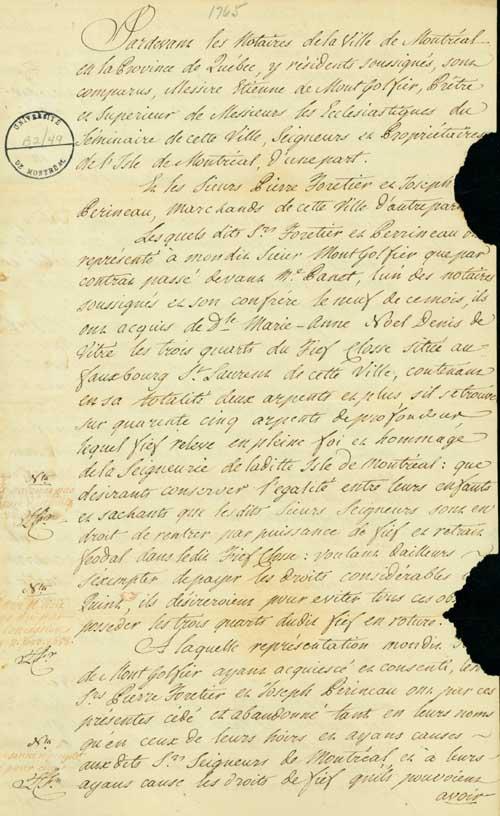 1765
Pardevant les Notaires de la Ville de Montréal
en la Province de Québec, y résidents soussignés, sont
comparus, Messire Etienne de MontGolfier, Prêtre
et Superieur de Messieurs les Ecclesiastiques du
Séminaire de cette Ville, Seigneurs et Propriétaires
de l'Isle de Montréal, d'une part.
Et les Sieurs Pierre Foretier et Joseph
Perineau, Marchands de cette Ville d'autre part
Lesquels dits Srs Foretier et Perrineau
représenté à mondit Sieur MontGolfier que par
contrat passé devant Me Panet, l'un des notaires
soussignés et son confrère le neuf de ce mois, ils
ont acquis de Dlle Marie-Anne Noel Denis de
Vitré les trois quarts du Fief Closse situé au
fauxbourg St Laurent de cette Ville, contenant
en sa totalité deux arpents en plus s'il se trouve
sur quarente cinq arpents de profondeur
lequel fief releve en pleine foi et hommage
de la Seigneurie de laditte Isle de Montréal: que
désirants conserver l'egalité entre leurs enfants
et sachants que lesdits Sieurs Seigneurs sont en
droit de rentrer par puissance de fief et retrait
féodal dans ledit Fief Closse: voulant d'ailleurs
s'exempter de payer les droits considérables
Quint, ils désireroient pour eviter tous ces
posséder les trois quarts dudit fief en roture.
A laquelle représentation mondit
de MontGolfier ayant acquiescé et consenti,
Srs Pierre Foretier et Joseph Perineau ont par ces
présentes cédé et abandonné tant en leurs noms
qu'en ceux de leurs hoirs et ayans causes
auxdits Srs Seigneurs de Montréal et à leurs
ayans cause les droits de fief qu'ils pouvoient
avoir
UNIVERSITÉ
B2/49
DE MONTRÉAL
Nta
Nta
Nta